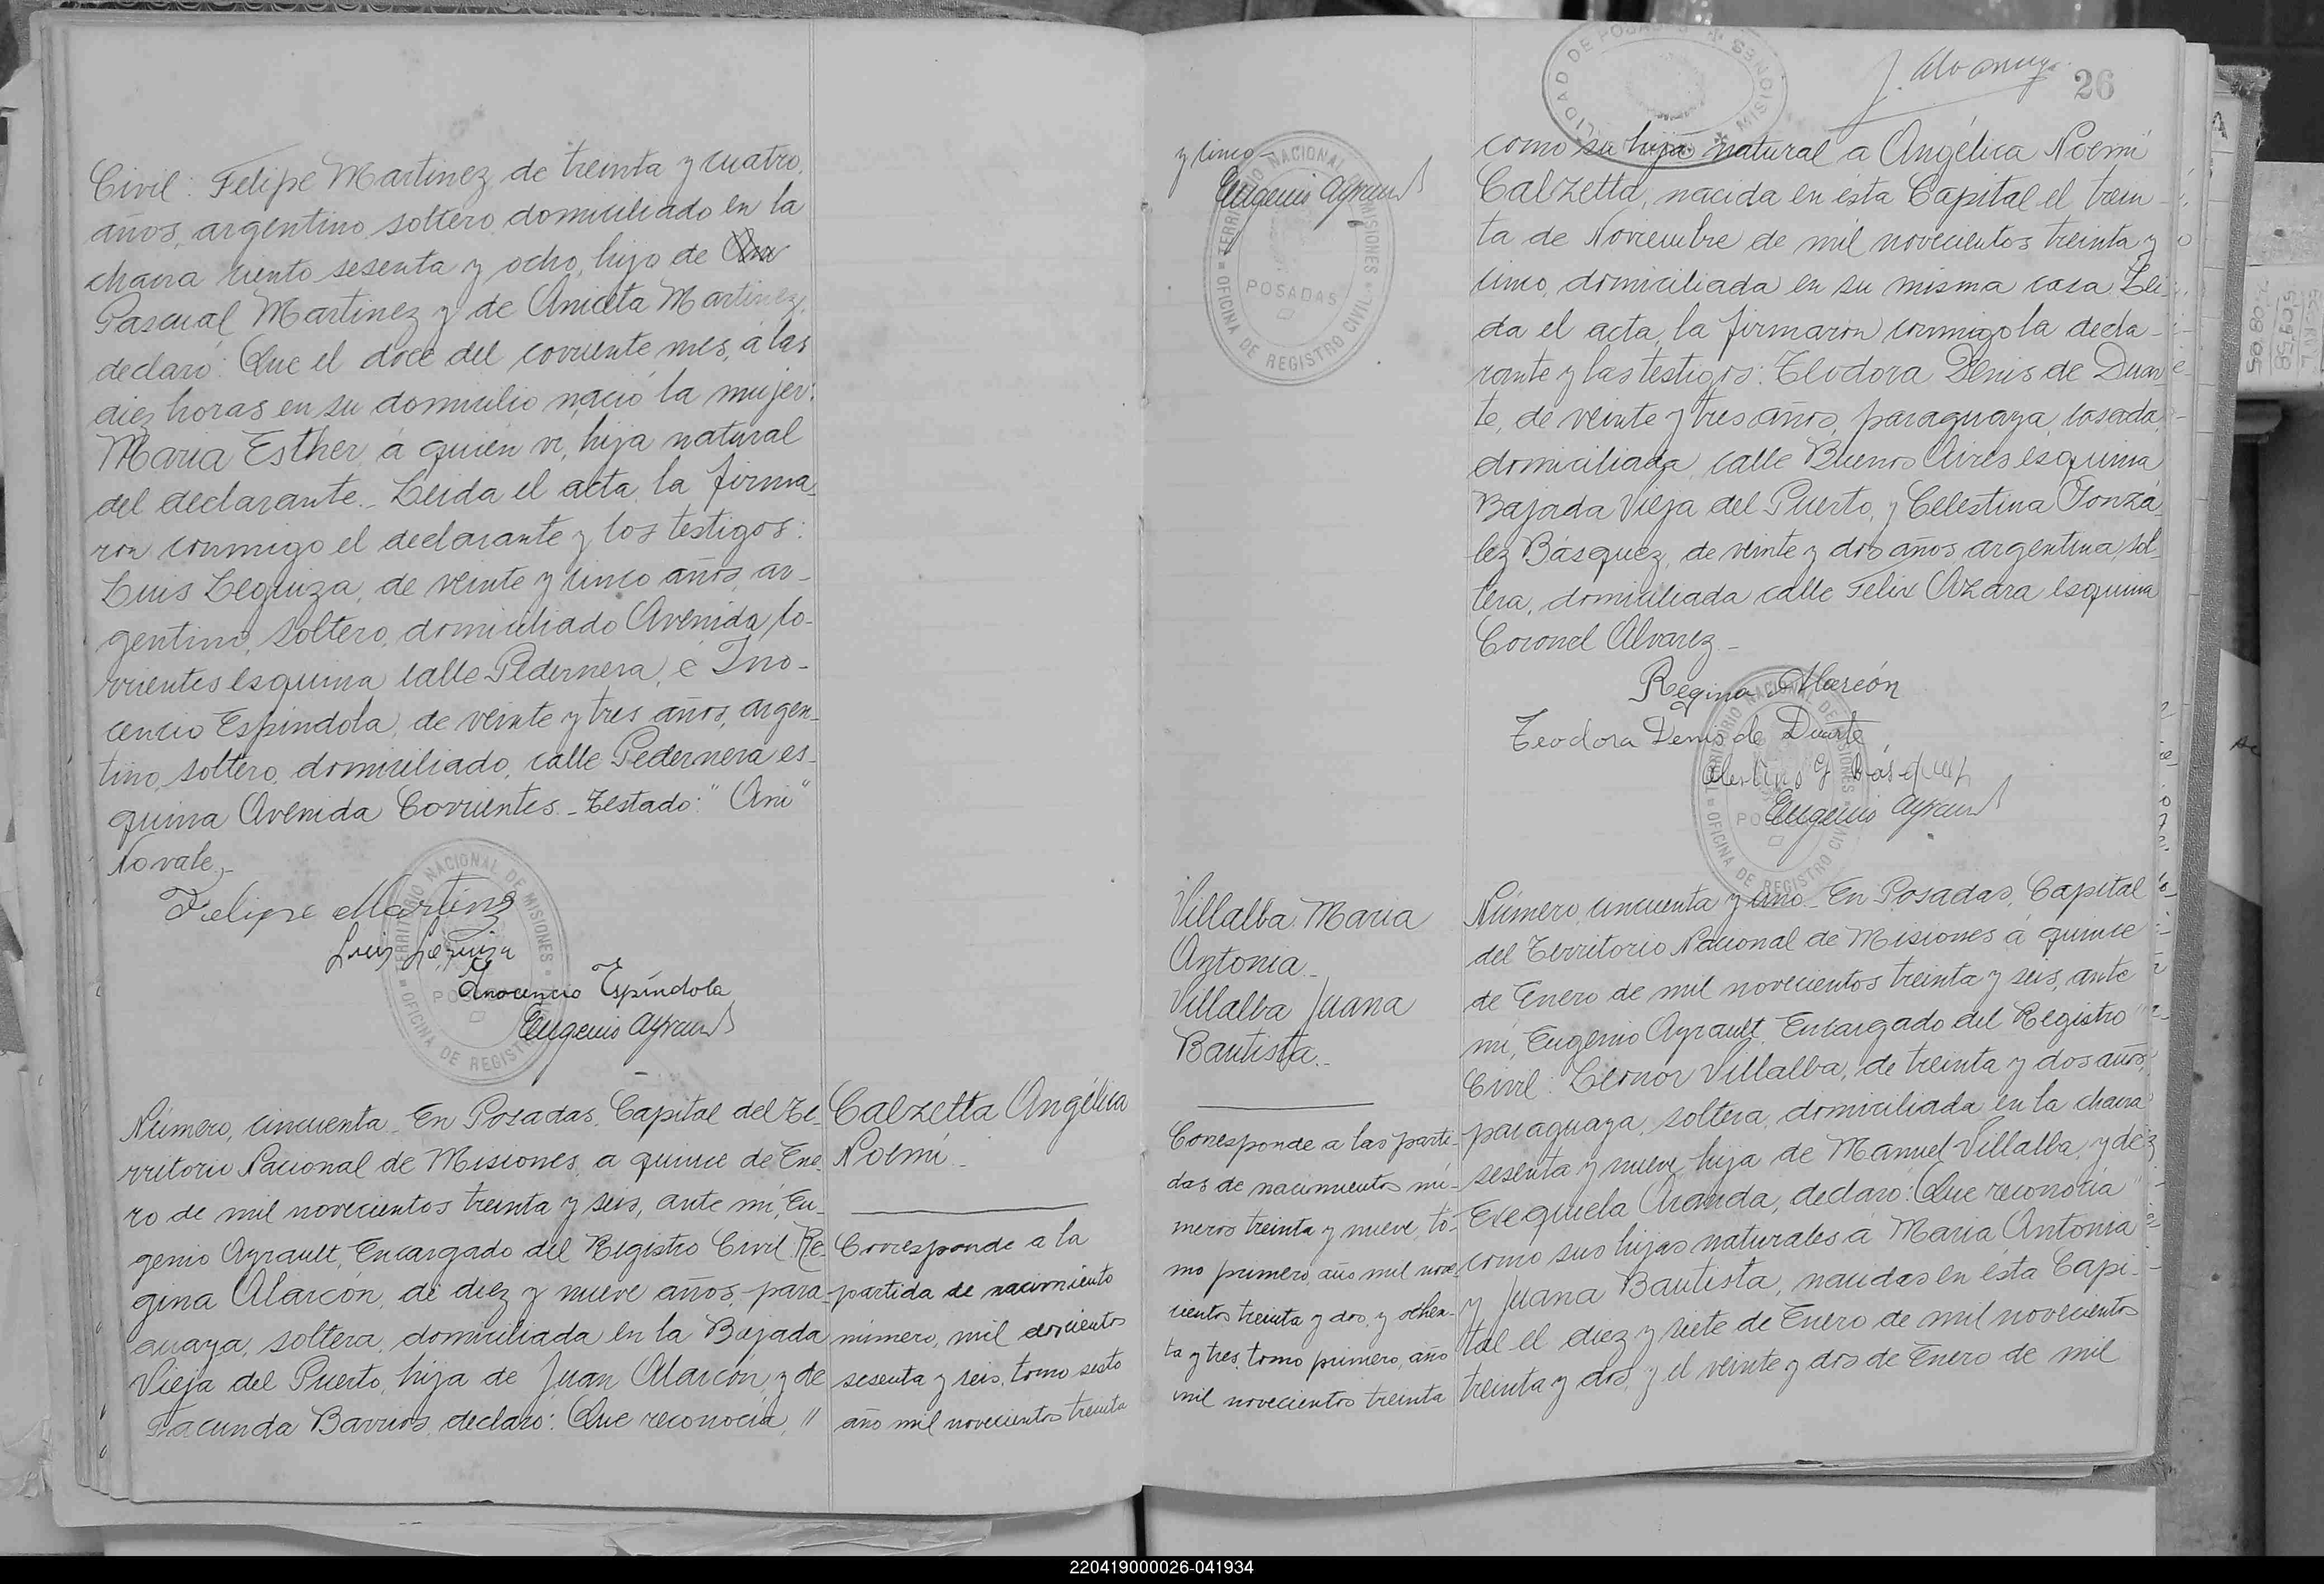 Civil: Felipe Martinez, de treinta y cuatro
años, argentino, soltero, domiciliado en la
chacra ciento sesenta y ocho, hijo de
Pascual Martinez y de Aniceta Martinez,
declaró: Que el doce del corriente mes, á las
diez horas en su domicilio nació la mujer:
Maria Esther, á quien vi, hija natural
del declarante.- Leida el acta, la firma-
ron conmigo el declarante y los testigos:
Luis Leguiza, de veinte y cinco años, ar-
gentino, soltero, domiciliado Avenida Co-
rrientes esquina calle Pedernera, é Ino-
cencio Espindola, de veinte y tres años, argen-
tino, soltero, domiciliado, calle Pedernera es-
quina Avenida Corrientes.- Testado: "Ani"
No vale.-
Felipe Martinez
Luis Leguiza
Inocencio Espíndola
Eugenio Ayrault
TERRITORIO NACIONAL DE MISIONES
POSADAS
OFICINA DE REGISTRO CIVIL
Número, cincuenta.- En Posadas, Capital del Te-
rritorio Nacional de Misiones, a quince de Ene-
ro de mil novecientos treinta y seis, ante mi, Eu-
genio Ayrault, Encargado del Registro Civil: Re-
gina Alarcón, de diez y nueve años, para-
guaya, soltera, domiciliada en la Bajada
Vieja del Puerto, hija de Juan Alarcón y de
Facunda Barrios, declaró: Que reconocía, "
Calzetta Angélica
Noemí.-
Corresponde a la
partida de nacimiento
número, mil doscientos
sesenta y seis, tomo sesto
año mil novecientos treinta
y cinco.-
Eugenio Ayrault
TERRITORIO NACIONAL DE MISIONES
POSADAS
OFICINA DE REGISTRO CIVIL
26
como su hija natural a Angélica Noemí
Calzetta, nacida en ésta Capital el trein-
ta de Noviembre de mil novecientos treinta y
cinco, domiciliada en su misma casa. Lei-
da el acta, la firmaron conmigo la decla-
rante y las testigos: Teodora Denis de Duar-
te, de veinte y tres años, paraguaya, casada,
domiciliada, calle Buenos Aires esquina
Bajada Vieja del Puerto, y Celestina Gonzá-
lez Básquez, de veinte y dos años, argentina, sol-
tera, domiciliada calle Felix Azara esquina
Coronel Alvarez.-
Regina Alarcón
Teodora Denis de Duarte
Celestina G Básquez
Eugenio Ayrault
TERRITORIO NACIONAL DE MISIONES
POSADAS
OFICINA DE REGISTRO CIVIL
Villalba Maria
Antonia.-
Villalba Juana
Bautista.-
Corresponde a las parti-
das de nacimientos nú-
meros treinta y nueve, to-
mo primero, año mil nove-
cientos treinta y dos, y ochen-
ta y tres, tomo primero, año
mil novecientos treinta
Número, cincuenta y uno.- En Posadas, Capital
del Territorio Nacional de Misiones á quince
de Enero de mil novecientos treinta y seis, ante
mi, Eugenio Ayrault, Encargado del Registro "
Civil: Leonor Villalba, de treinta y dos años,
paraguaya, soltera, domiciliada en la chacra
sesenta y nueve, hija de Manuel Villalba, y de
Exequiela Aranda, declaró: Que reconocía "
como sus hijas naturales á Maria Antonia
y Juana Bautista, nacidas en ésta Capi-
tal el diez y siete de Enero de mil novecientos
treinta y dos, y el veinte y dos de Enero de mil
220419000026-041934